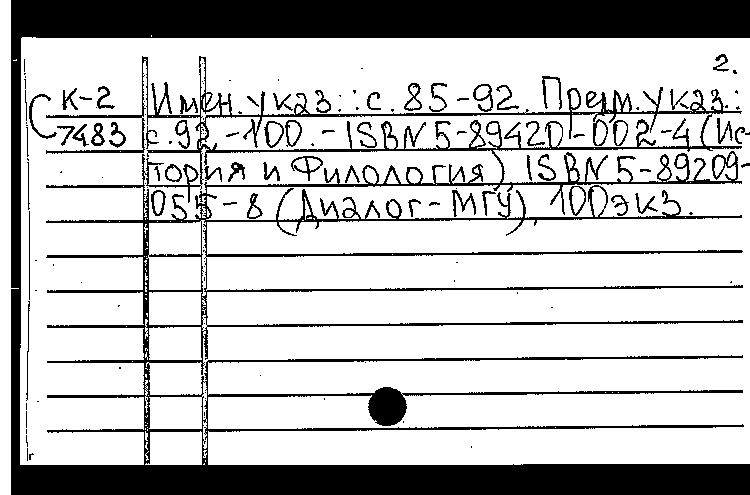 2.
К-2 Имен. указ.: с. 85-92. Предм. указ.:
С 7483 с. 92-100. - ISBN 5-89420-002-4 (Ис-
тория и Филология), ISBN 5-89209-
055-8 (Диалог-МГУ), 100 экз.